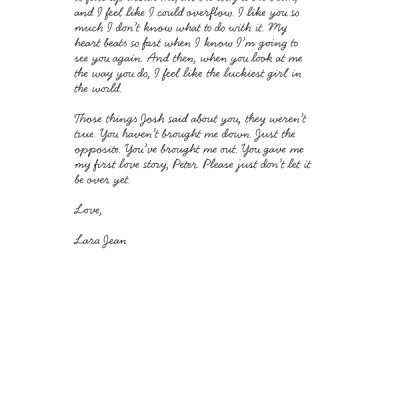 and I feel like I could overflow. I like you so
much I don't know what to do with it. My
heart beats so fast when I know I'm going to
see you again. And then, when you look at me
the way you do, I feel like the luckiest girl in
the world.
Those things Josh said about you, they weren't
true. You haven't brought me down. Just the
opposite. You've brought me out. You gave me
my first love story, Peter. Please just don't let it
be over yet.
Love,
Lara Jean